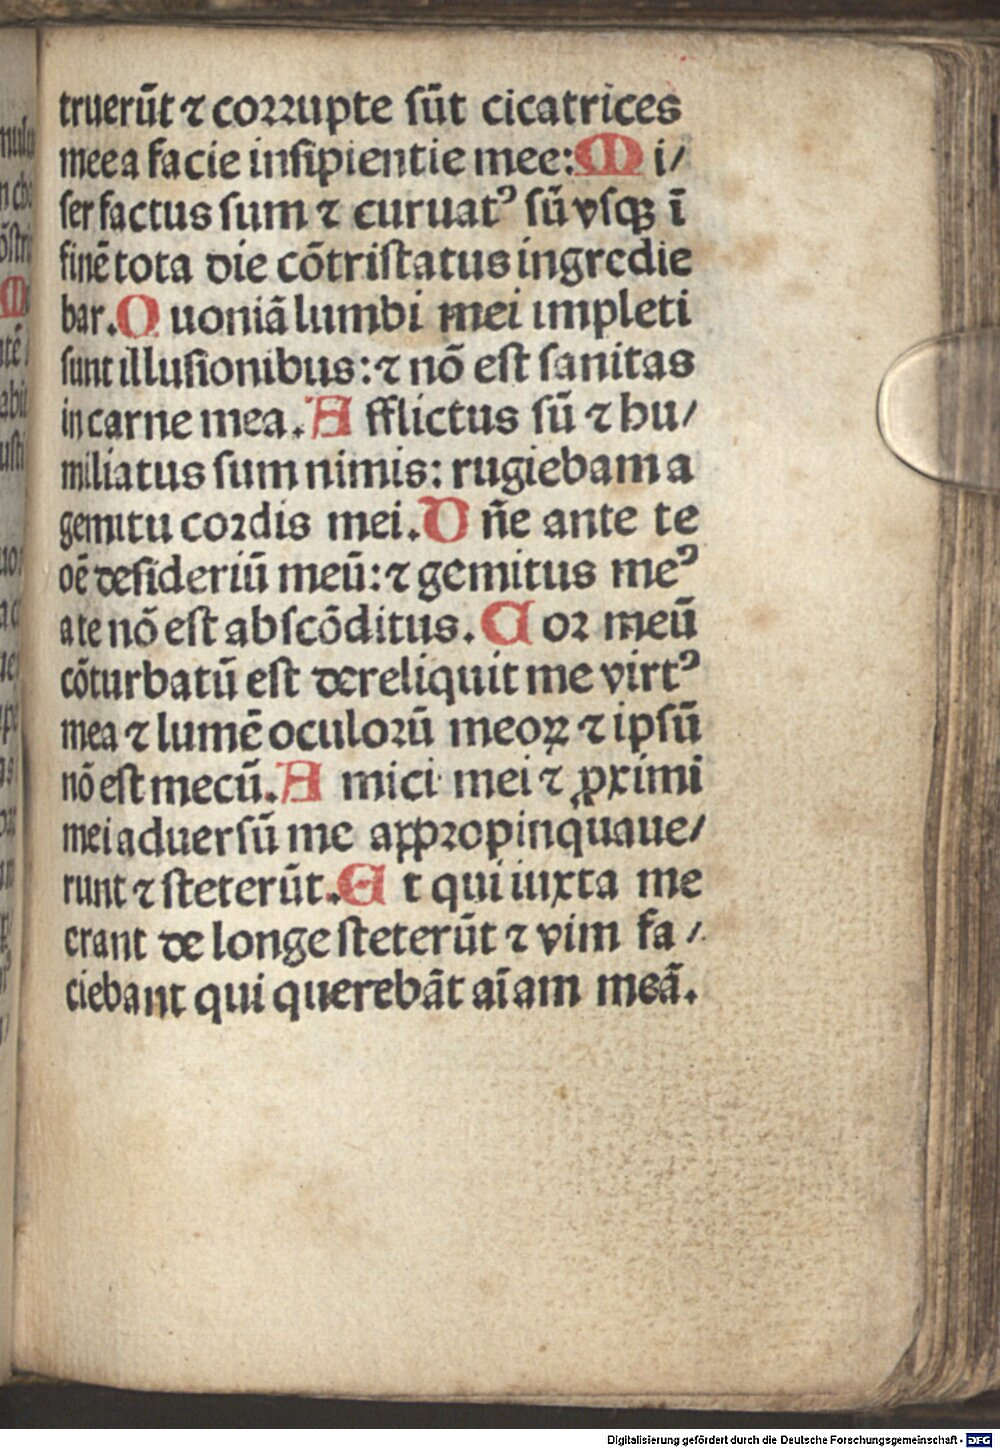 truerūt ⁊ coꝛꝛupte ſūt cicatrices
mee a facie inſipientie mee: M i/
ſer factus ſum ⁊ curuatꝰ ſū vſqꝫ ī
finē tota die cōtriſtatus ingredie
bar. Q uoniā lumbi mei impleti
ſunt illuſionibus: ⁊ nō eſt ſanitas
in carne mea. A fflictus ſū ⁊ hu/
miliatus ſum nimis: rugiebam a
gemitu coꝛdis mei. D n̄e ante te
oē deſideriū meū: ⁊ gemitus meꝰ
a te nō eſt abſcōditus. C oꝛ meū
cōturbatū eſt dereliquit me virtꝰ
mea ⁊ lumē oculoꝛū meoꝝ ⁊ ipſū
nō eſt mecū. A mici mei ⁊ ꝓximi
mei aduerſū me appꝛopinquaue/
runt ⁊ ſteterūt. E t qui iuxta me
erant de longe ſteterūt ⁊ vim fa/
ciebant qui querebāt aīam meā.
Digitalisierung gefördert durch die Deutsche Forschungsgemeinschaft - DFG